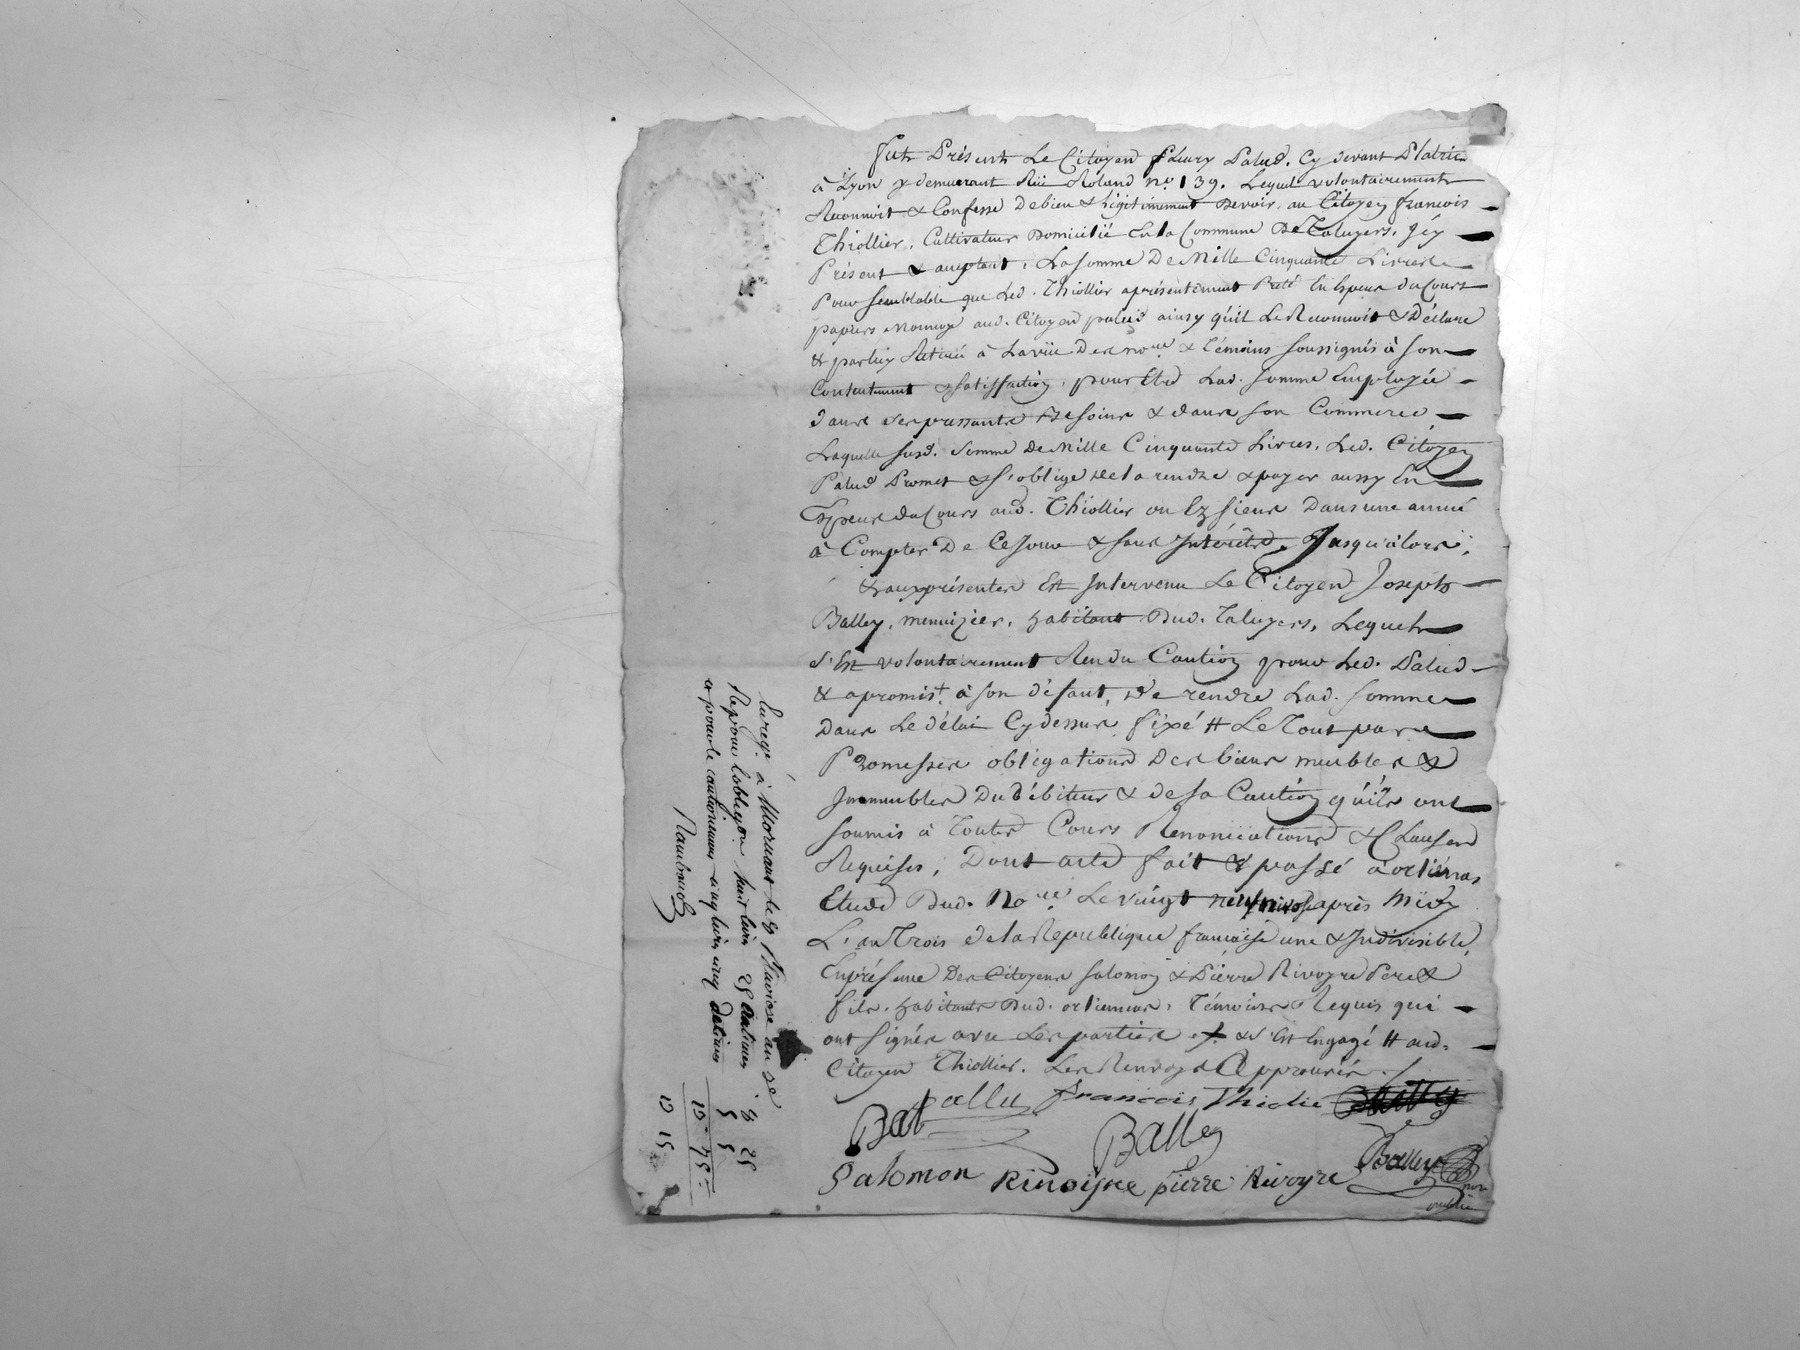 fut Présent Le Citoyen fleury Palud. Cy devant Platrier
à Lyon y demeurant Rüe Roland n.o 139. Lequel volontairement
Reconnoit & Confesse De bien & légitimement Devoir au Citoyen françois
Thiollier, Cultivateur Domicilié En la Commune De Taluyers, Icy
Présent & aceptant, La somme De Mille Cinquante Livres
Pour semblable que Led. Thiollier a présentement Preté En Espece du Cours
papiers Monnoye aud. Citoyen palud ainsy qu'il Le Reconnoit & Déclare
& par luy Retirée à La vüe Des no.re & témoins soussignés à son
Contentement & satisfaction, pour Etre Lad. somme Employée
dans Ses pressants Besoins & dans son Commerce
Laquelle susd. Somme De Mille Cinquante Livres, Led. Citoyen
Palud Promet & s'oblige De la rendre & payer aussy En
Espece du Cours aud. Thiollier ou Ez siens Dans une année
à Compter De Ce Jour & sans Intérêts Jusqu'alors,
& aux présentes Est Intervenu Le Citoyen Joseph
Balley, menuizier, habitant Dud. Taluyers, Lequel
s'Est volontairement Rendu Caution pour Led. Palud
& a promis + à son défaut, De rendre Lad. somme
Dans Le délai Cy dessus fixé # Le Tout par
Promesses obligations Des biens meubles &
Immeubles Du Débiteur & de sa Caution qu'ils ont
soumis à Toutes Cours Renonciations & Clauses
Requises, Dont acte fait & passé à orliénas
Etude Dud. No.re Le vingt neuf nivose après Midy
L'an Trois de la Republique françaïse une & Indivisible,
En présence Des Citoyens salomon & Pierre Rivoyre Pere &
fils, habitants Dud. orliénas, Témoins Requis qui
ont signés avec Les parties ./. + & s'Est Engagé # aud.
Citoyen Thiollier. Les Renvoys Approuvés ./.
françois Thiolie
Balley
Salomon Rivoijre pierre Rivoyre Balley
no.re
public
Enreg.é à Mornant le 8 Pluviose an 3e
Reçu pour l'obligon. huit livres 25 centimes 8 25
et pour le cautionnement cinq livres cinq decimes 5 5
Rambaud